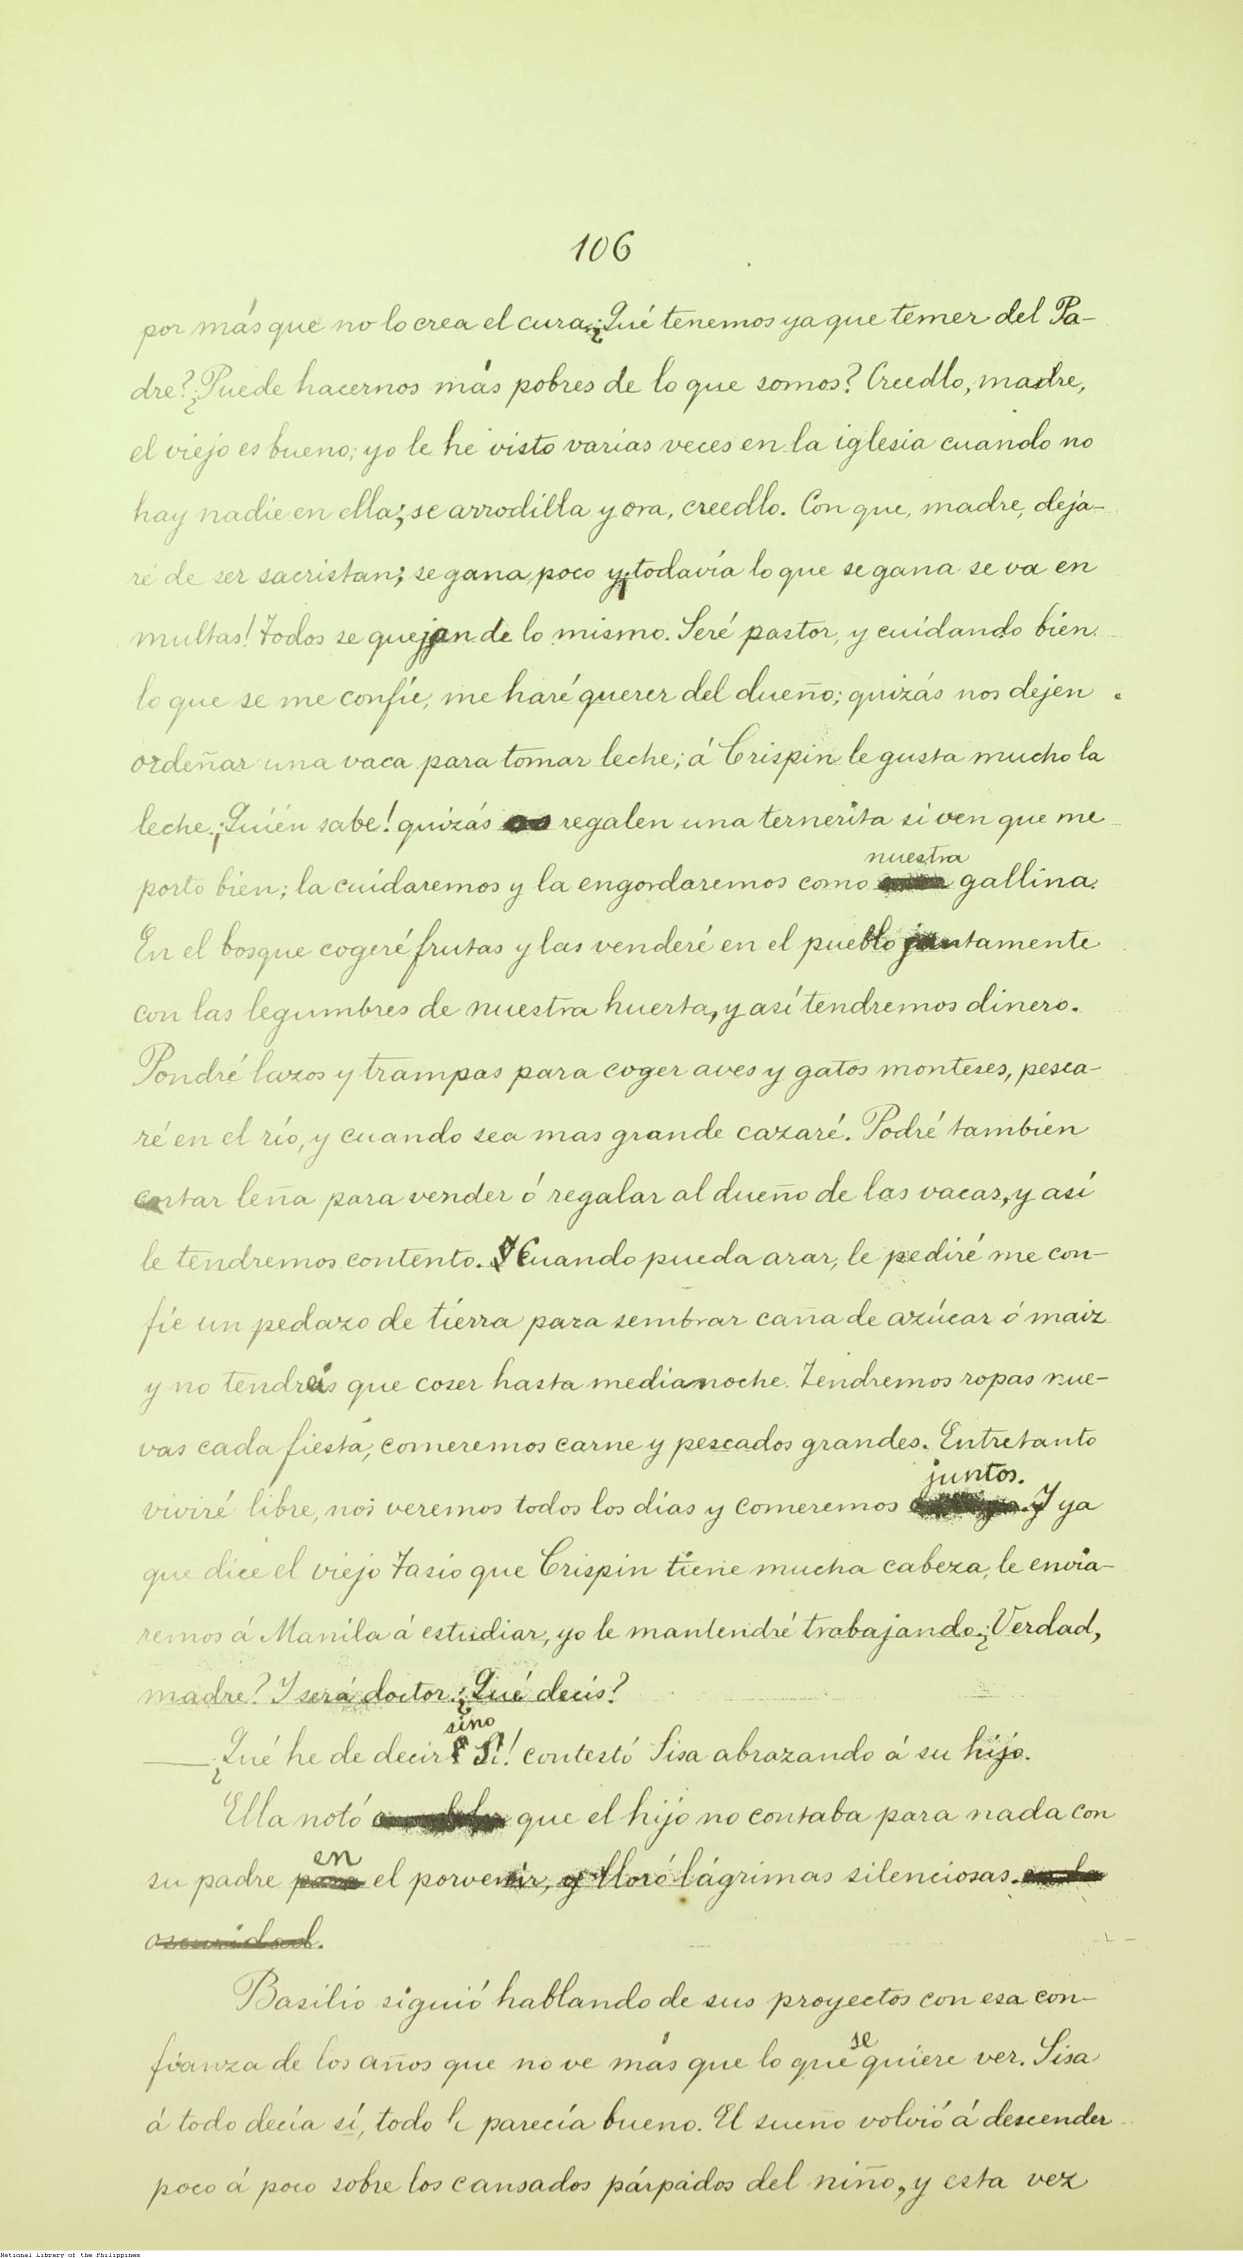 106
por más que no lo crea el cura. ¿Qué tenemos ya que temer del Pa-
dre? ¿Puede hacernos más pobres de lo que somos? Creedlo, madre,
el viejo es bueno; yo le he visto varias veces en la iglesia cuando no
hay nadie en ella; se arrodilla y ora, creedlo. Con que, madre, deja-
ré de ser sacristan; se gana poco y ¡todavía lo que se gana se va en
multas! Todos se quejan de lo mismo. Seré pastor, y cuidando bien
lo que se me confíe, me haré querer del dueño; quizás nos dejen
ordeñar una vaca para tomar leche; á Crispin le gusta mucho la
leche. ¡Quién sabe! quizás regalen una ternerita si ven que me
nuestra
porto bien; la cuidaremos y la engordaremos como gallina.
En el bosque cogeré frutas y las venderé en el pueblo juntamente
con las legumbres de nuestra huerta, y así tendremos dinero.
Pondré lazos y trampas para coger aves y gatos monteses, pesca-
ré en el río, y cuando sea mas grande cazaré. Podré también
cortar leña para vender ó regalar al dueño de las vacas, y así
le tendremos contento. Cuando pueda arar, le pediré me con-
fíe un pedazo de tierra para sembrar caña de azúcar ó maiz
y no tendreis que coser hasta medianoche. Tendremos ropas nue-
vas cada fiesta, comeremos carne y pescados grandes. Entretanto
juntos.
viviré libre, nos veremos todos los días y comeremos Y ya
que dice el viejo Tasio que Crispin tiene mucha cabeza, le envia-
remos á Manila á estudiar, yo le mantendré trabajando. ¿Verdad,
madre? Y será doctor. ¿Qué decís?
sino
— ¿Qué he de decir Sí! contestó Sisa abrazando á su hijo.
Ella notó que el hijo no contaba para nada con
en
su padre para el porvenir, y lloró lágrimas silenciosas. en la
oscuridad.
Basilio siguió hablando de sus proyectos con esa con-
se
fianza de los años que no ve más que lo que quiere ver. Sisa
á todo decía sí, todo le parecía bueno. El sueño volvió á descender
poco á poco sobre los cansados párpados del niño, y esta vez
National Library of the Philippines